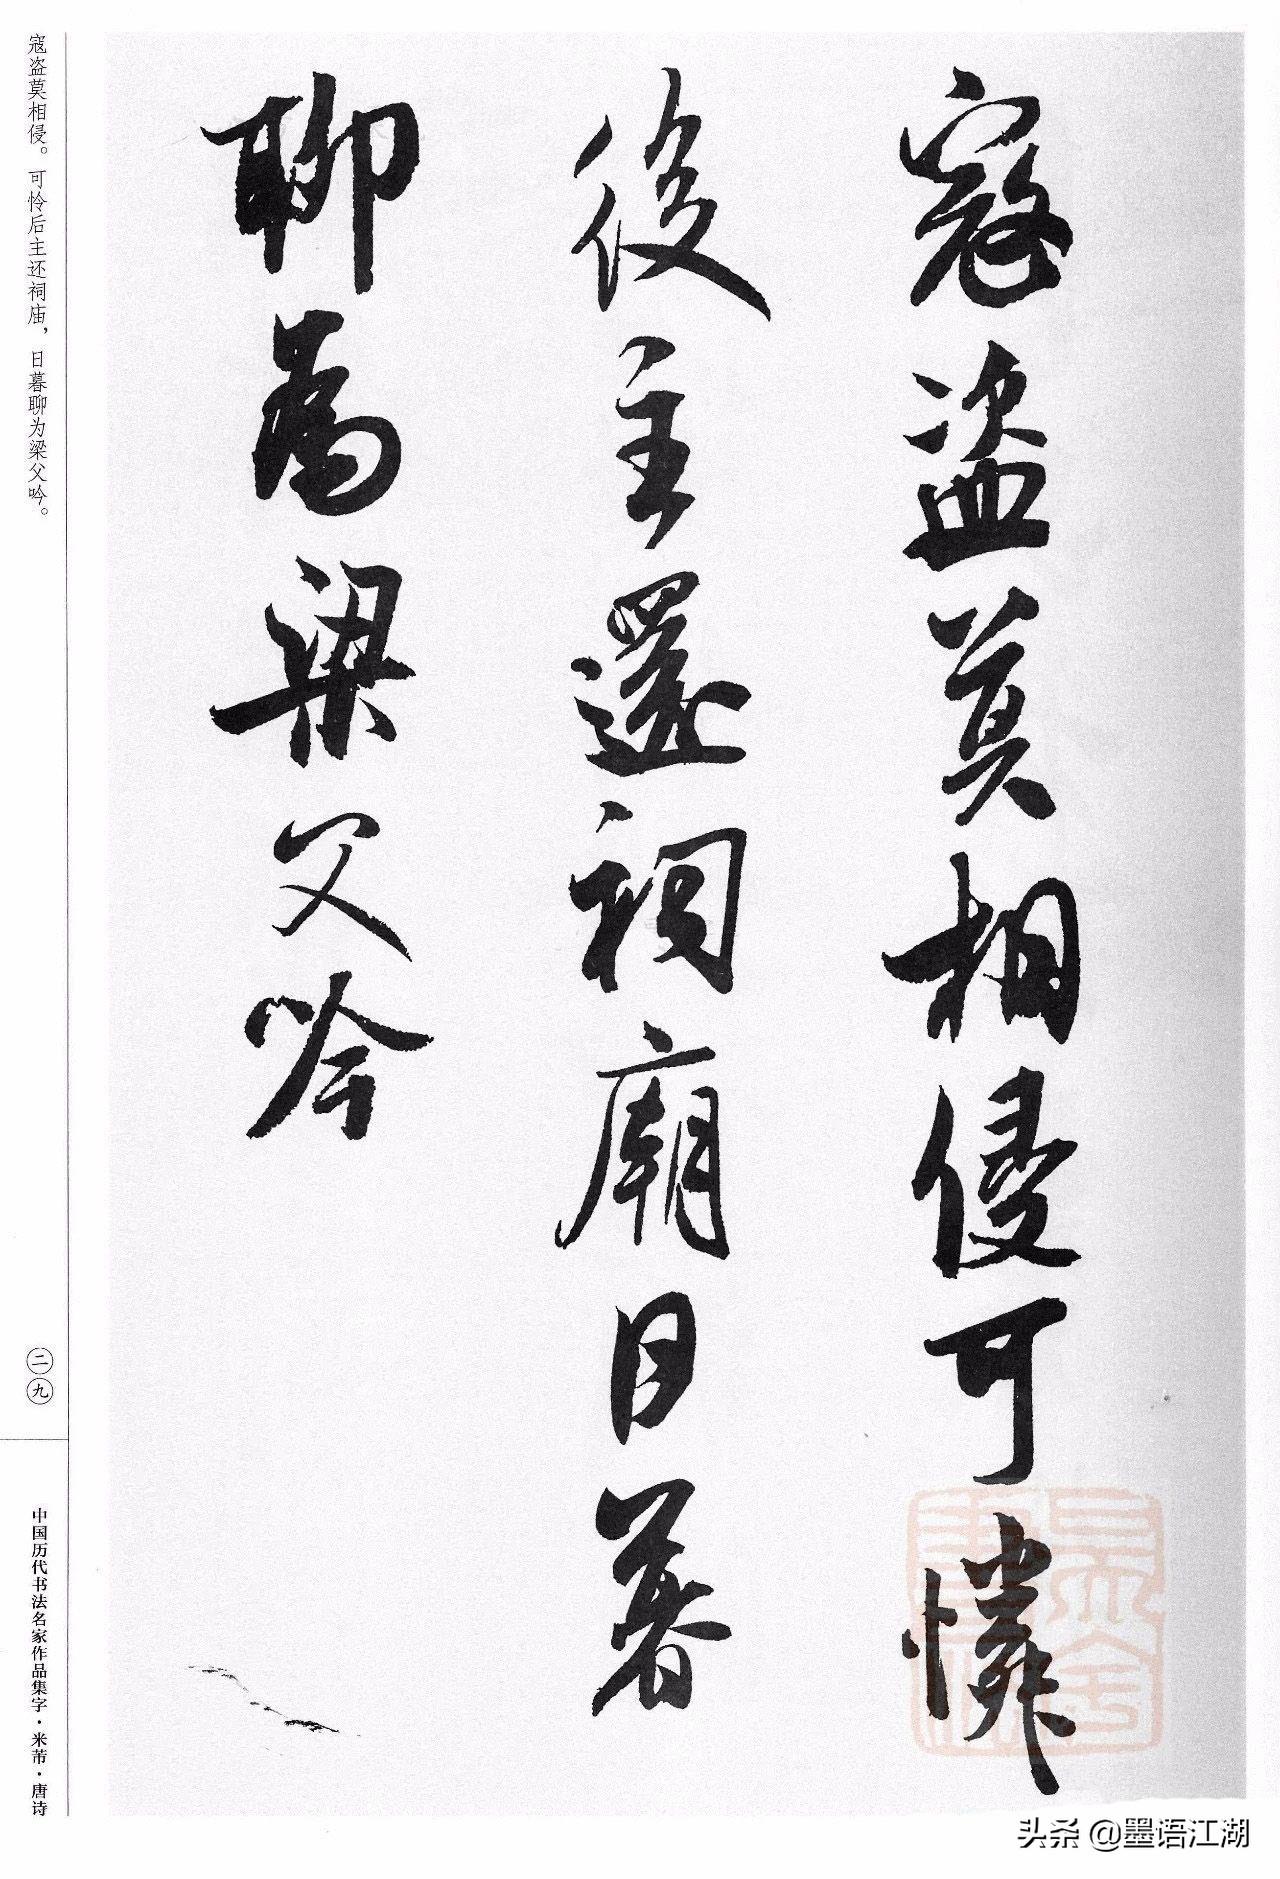 寇盗莫相侵可憐
後主還祠廟日暮
聊為梁父吟
寇盗莫相侵。可怜后主还祠庙，日暮聊为梁父吟。
二九
中国历代书法名家作品集字·米芾·唐诗
头条 @墨语江湖